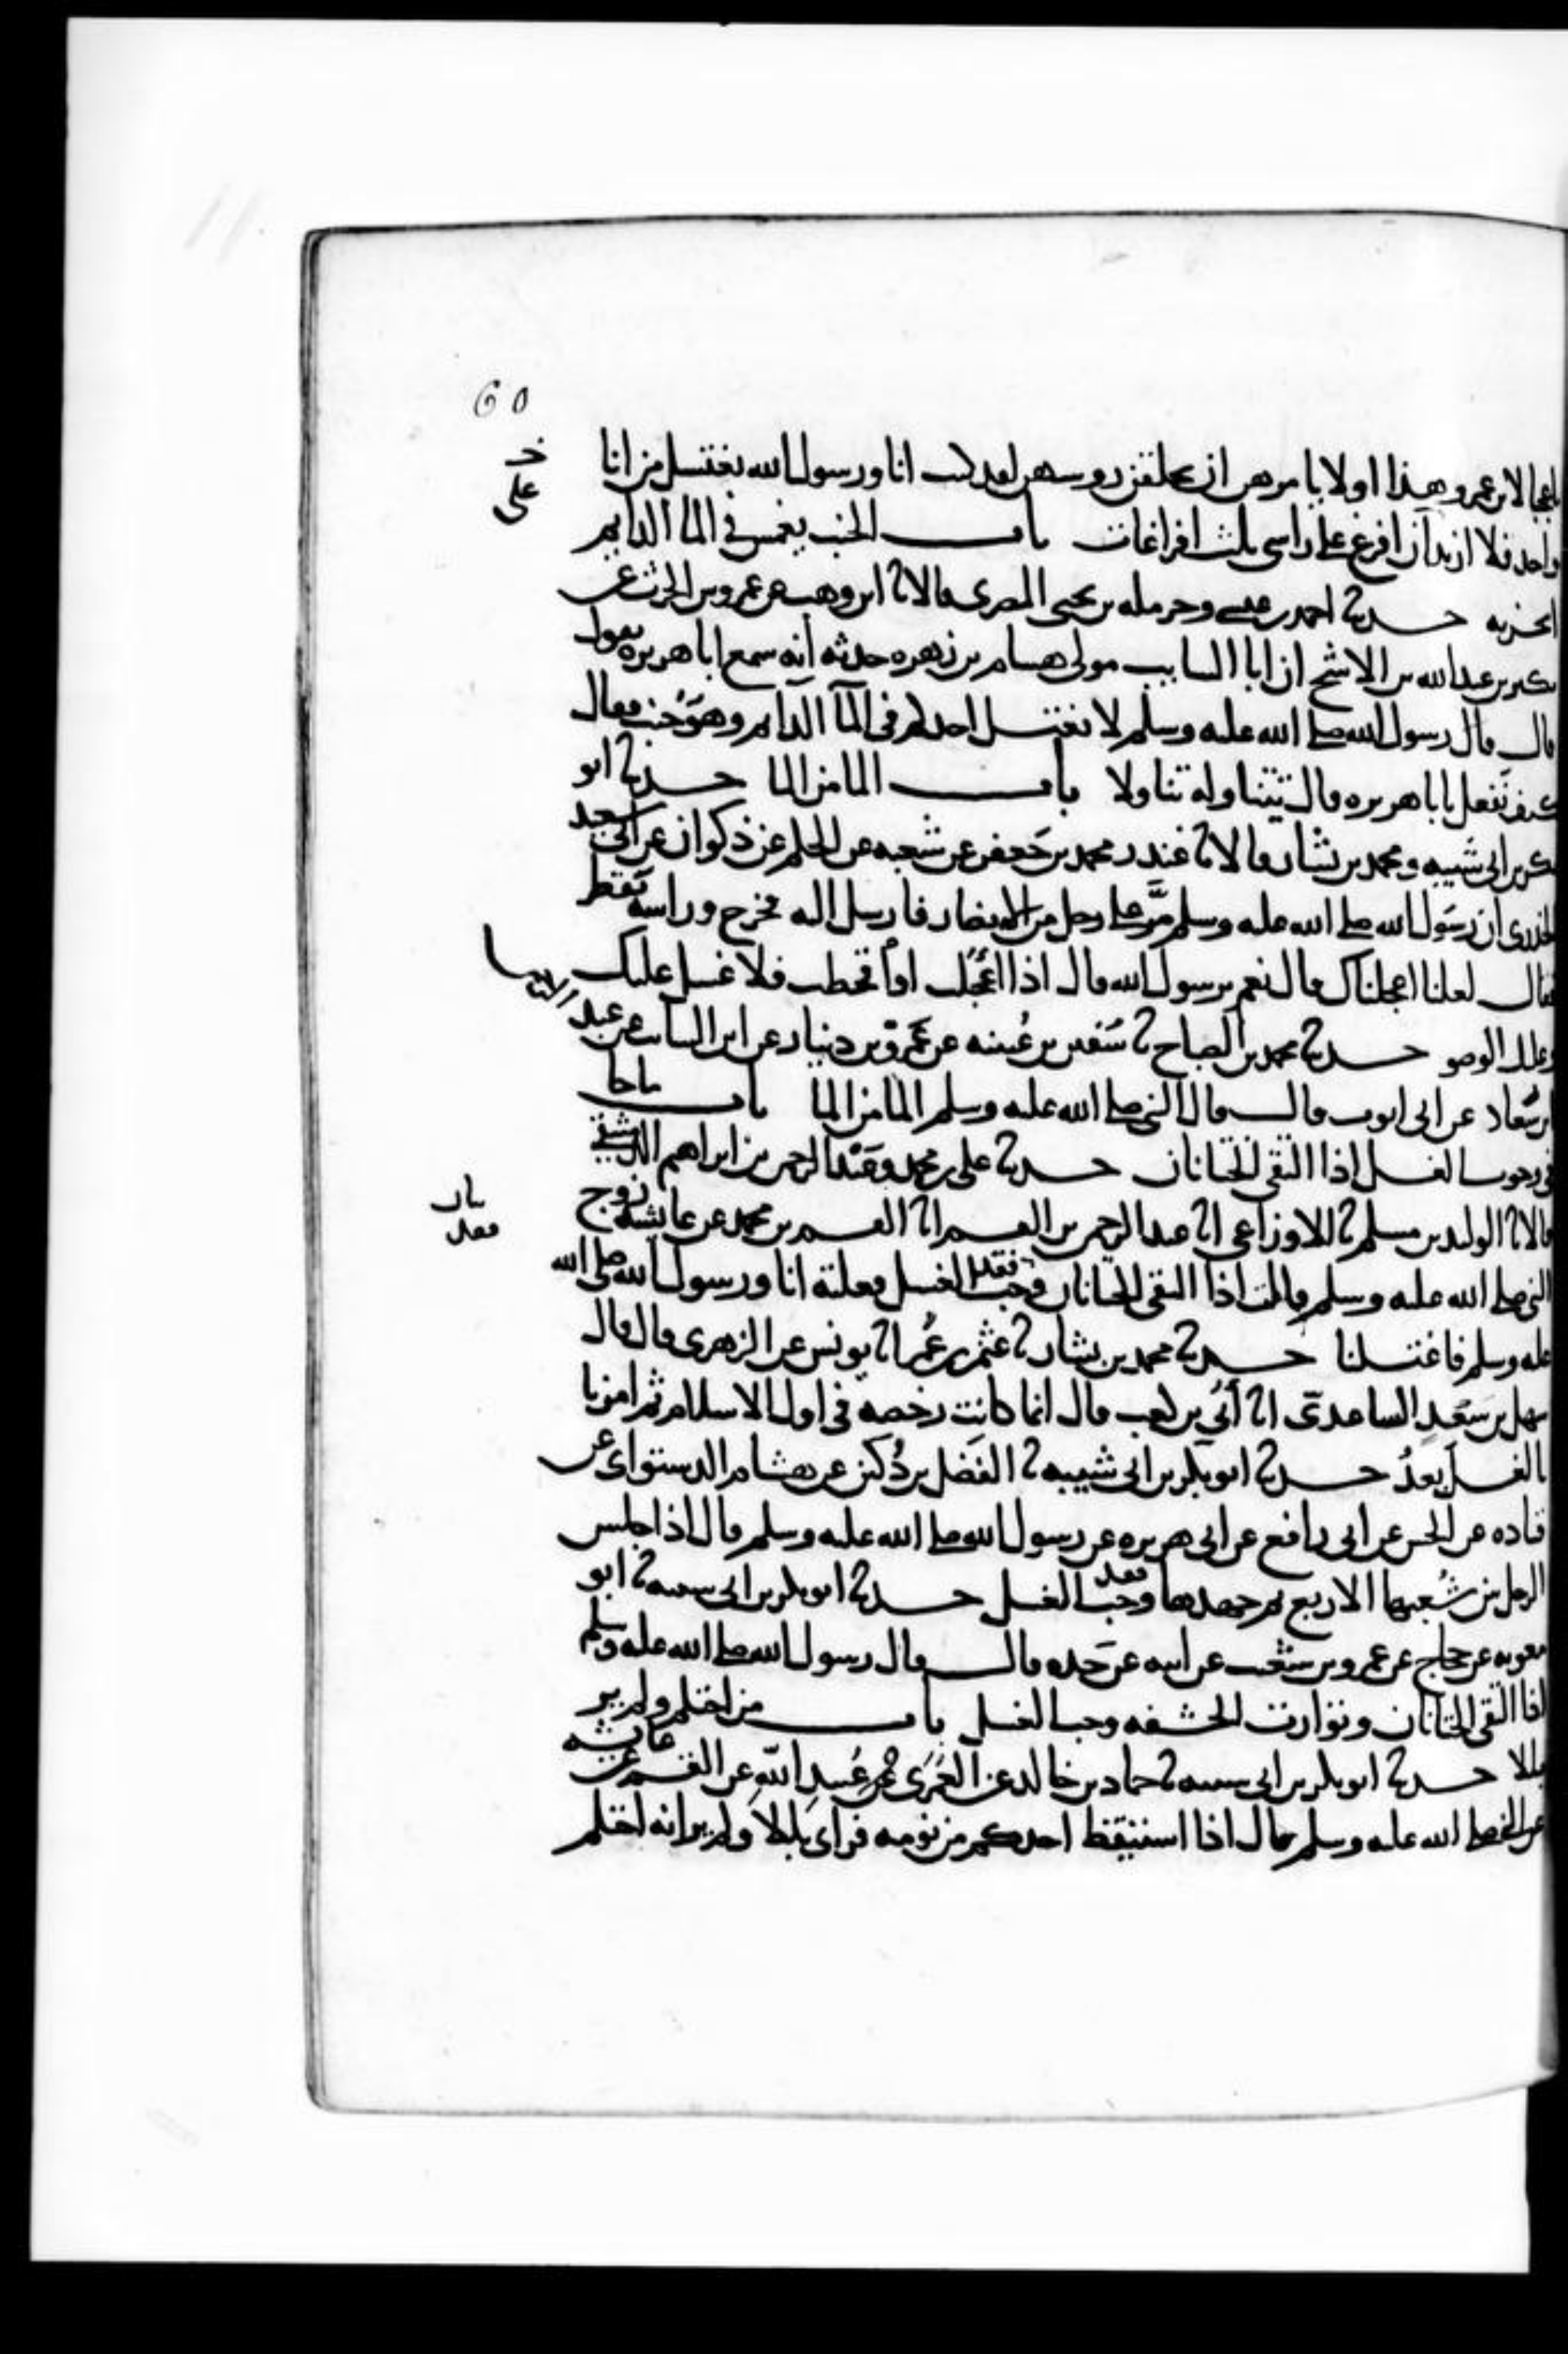 60
خ
على
يا عجبا لابن عمرو هذا اولا يامرهن ان يحلقن روسهن لقد كنت انا ورسول الله نغتسل من انا
واحد فلا ازيد ان افرغ على راسي ثلث افراغات باب الجنب يغمس في الما الدايم
ايجزيه حدثنا احمد بن عيسى وحرمله بن يحيى المصري قالا ثنا ابن وهب عن عمرو بن الحرث عن
بكير بن عبد الله بن الاشج ان ابا السايب مولى هشام بن زهره حدثه انه سمع ابا هريره يقول
قال قال رسول الله صلى الله عليه وسلم لا يغتسل احدكم في المآ الدايم وهو جنب فقال
كيف نفعل يابا هريره قال يتناوله تناولا باب الما من الما حدثنا ابو
بكر بن ابي شيبه ومحمد بن بشار قالا ثنا غندر محمد بن جعفر عن شعبه عن الحكم عن ذكوان عن ابي سعيد
الخدري ان رسول الله صلى الله عليه وسلم مر على رجل من الانصار فارسل اليه فخرج وراسه يقطر
فقال لعلنا اعجلناك قال نعم يرسول الله قال اذا اعجلت او اقحطت فلا غسل عليك
وعليك الوضو حدثنا محمد بن الصباح ثنا سفين بن عيينه عن عمرو بن دينار عن ابن السايب عن عبد الرحمن
بن سعاد عن ابي ايوب قال قال النبي صلى الله عليه وسلم الما من الما باب ما جا
في وجوب الغسل اذا التقى الختانان حدثنا علي بن محمد وعبد الرحمن بن ابراهيم الدمشقي
قالا ثنا الوليد بن مسلم ثنا الاوزاعي انا عبد الرحمن بن القسم انا القسم بن محمد عن عايشه زوج
النبي صلى الله عليه وسلم قالت اذا التقى الختانان فقد وجب الغسل فعلته انا ورسول الله صلى الله
عليه وسلم فاغتسلنا حدثنا محمد بن بشار ثنا عثمن بن عمر انا يونس عن الزهري قال قال
سهل بن سعد الساعدي انا أبي بن كعب قال انما كانت رخصه في اول الاسلام ثم امرنا
بالغسل بعد حدثنا ابو بكر بن ابي شيبه ثنا الفضل بن دكين عن هشام الدستواى عن
قتاده عن الحسن عن ابي رافع عن ابي هريره عن رسول الله صلى الله عليه وسلم قال اذا جلس
الرجل بين شعبها الاربع ثم جهدها فقد وجب الغسل حدثنا ابو بكر بن ابي شيبه ثنا ابو
معويه عن حجاج عن عمرو بن شعيب عن ابيه عن جده قال قال رسول الله صلى الله عليه وسلم
اذا التقى الختانان وتوارت الحشفه وجب الغسل باب من احتلم ولم ير
بللا حدثنا ابو بكر بن ابي شيبه ثنا حماد بن خالد عن العمري عن عبيد الله عن القسم عن عايشه
عن النبي صلى الله عليه وسلم قال اذا استيقظ احدكم من نومه فراى بللا ولم ير انه احتلم